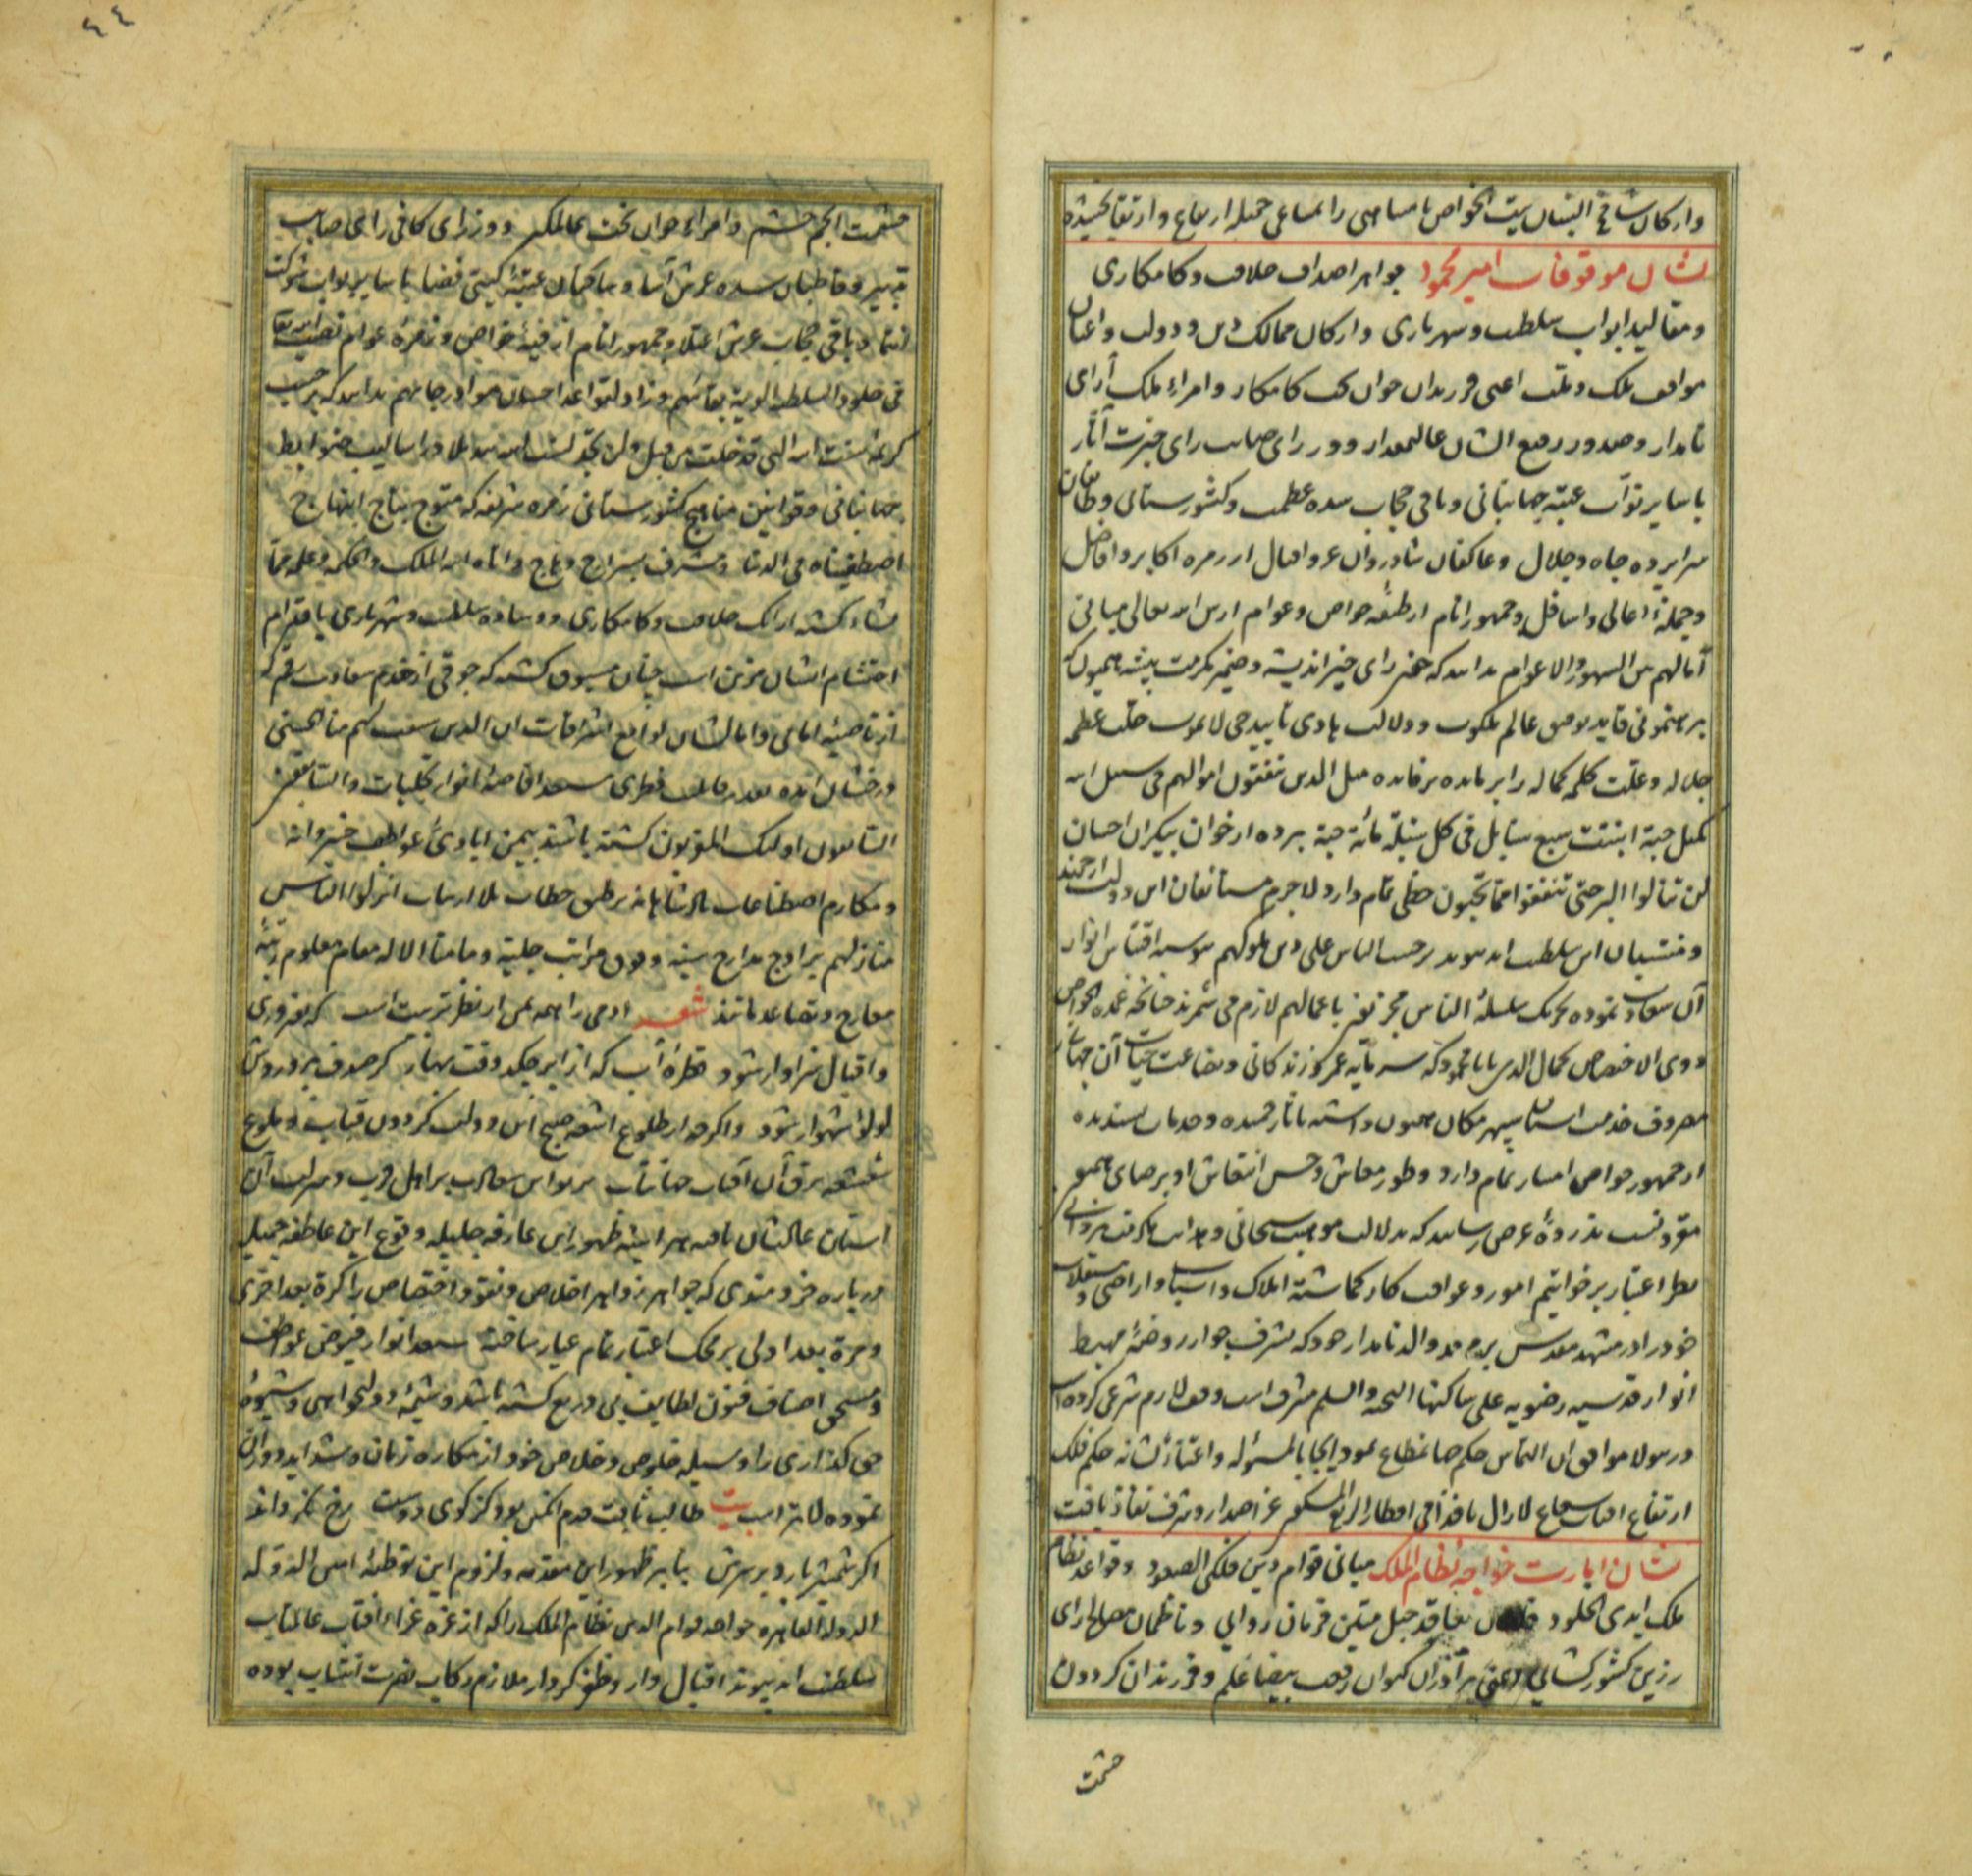 وارکان شامخ البنیان بیت الخواص نامناهی را بمساعی جمیله ارتفاع و ارتقا بخشیده
نشان موقوفات امیر محمود جواهر اصداف خلافت و کامکاری
و مقالید ابواب سلطنت و شهریاری و ارکان ممالک دین و دولت و اعیان
مواقف ملک و ملت اعنی فرزندان جوان بخت کامکار و امراء ملک آرای
نامدار و صدور رفیع الشان عالیمقدار و وزرای صایب رای خبرت آثار
با سایر نواب عتبه جهانبانی و باقی حجاب سده عظمت و کشورستانی و قاطنان
سراپرده جاه و جلال و عاکفان شادروان عز و اقبال از زمره اکابر و افاضل
و جمله اعالی و اسافل و جمهور انام از طبقه خواص و عوام ارس الله تعالی مبانی
آمالهم من الشهور و الاعوام بدانند که چون رای خیر اندیشه و ضمیر مکرمت پیشه همیون
برهنمونی قاید توفیق عالم ملکوت و دلالت هادی تایید حی لایموت جلت عظمه
جلاله و علت کلمه کماله را بر مایده پرفایده مثل الذین ینفقون اموالهم فی سبیل الله
کمثل حبة انبتت سبع سنابل فی کل سنبلة مائة حبة بهره از خوان بیکران احسان
لن تنالوا البر حتی تنفقوا مما تحبون حظی تمام دارد لاجرم مستانفان این دولت ارجمند
و منتسبان این سلطنت ابد پیوند بر حسب الناس علی دین ملوکهم پیوسته اقتباس انوار
آن سعادت نموده تحریک سلسله الناس مجزیون باعمالهم لازم می شمرند چنانچه عمده الخواص
ذوی الاختصاص کمال الدین بابا محمود که سرمایه عمر و زندکانی و بضاعت حیات آن جهانی
مصروف خدمت آستان سپهر مکان همیون داشته بآثار حمیده و خدمات پسندیده
از جمهور خواص امتیاز تمام دارد و طور معاش و حسن انتعاش او بر ضمایر همیون
بذروه عرض رسانید که بدلالت موهبت سبحانی و هدایت مکرمت یزدانی
نظر اعتبار بر خواتیم امور و عواقب کار کماشته املاک و اسباب و اراضی و مستغلات
خود را در مشهد مقدس بر مرقد والد نامدار خود که بشرف جوار روضه مهبط
انوار قدسیه رضویه علی ساکنها التحیه و السلم مشرف است وقف لازم شرعی کرده است
در سولا موافق آن التماس حکم جهانمطاع نمود ایجابا لمسئوله و اعتزازا لشانه حکم فلک
ارتفاع آفتاب شعاع لازال نافذا فی اقطار الربع المسکون عز اصدار و شرف نفاذ یافت
نشان امارت خواجه نظام الملک مبانی قوام دین فلکی الصعود و قواعد نظام
ملک ابدی الخلود بمعاقد حبل متین فرمان روایی و ناظمان مصالح رای
رزین کشورکشایی اعنی برادران کیوان رفعت بیضا علم و فرزندان کردون
حشمت
٤٤
حشمت انجم حشم و امراء جوان بخت ممالک و وزرای کافی رای صایب
تدبیر و قاطنان سده عرش آسا و ساکنان عتبه کیتی فضا با سایر نواب شوکت
انتما و باقی حجاب عرش اعتلا و جمهور انام از فیه خواص و زمره عوام
فی خلود السلطنه الابدیه بقائهم و زاد لقواعد احسان درجاتهم بدانند که بر حسب
کریمه سنت الله التی قد خلت من قبل و لن تجد لسنت الله تبدیلا در اسالیب ضوابط
جهانبانی و قوانین مناهج کشورستانی زمره شریفه که متوج بتاج ابتهاج
اصطفیناه فی الدنیا و مشرف بسراج وهاج و اتاه الله الملک و الحکمه و علمه مما
یشاء کشته ارائک خلافت و کامکاری و وساده سلطنت و شهریاری باقدام
احتشام ایشان مزین است چنان مسبوق کشته که جوقی از خدم سعادت رقم که
از ناصیه امانی و امالشان لوامع اشراقات ان الذین سبقت لهم منا الحسنی
درخشان آمده بقدر قابلیت فطری مستعد افاضه انوار تجلیات و السابقون
السابقون اولئک المقربون کشته باشند بیمن ایادی عواطف خسروانه
و مکارم اصطناعات پادشاهانه بر طبق خطاب بلا ارتیاب انزلوا الناس
منازلهم بر اوج مدارج سنیه و فوق مراتب جلیه و ما منا الا له مقام معلوم رتبه
معارج و تصاعد یابند شعر ادمی را همه عز از نظر تربیت است که بفیروزی
و اقبال سزاوار شود قطره آب که از ابر چکد وقت بهار کر صدف پرورش
لولوء شهوار شود و اکرچه از طلوع اشعه صبح این دولت کردون قباب و بلوغ
شعشعه برق آن آفتاب جهانتاب پرتو این سعادت بر اهل قرب و منزلت آن
آستان عالیشان تافته هر آینه ظهور این عارفه جلیله و وقوع این عاطفه جمیله
در باره خردمندی که جواهر زواهر اخلاص و نقود اختصاص را کرة بعد اخری
و مرة بعد اولی بر محک اعتبار تمام عیار ساخته مستعد انوار فیوض عواطف
و مستحق اصناف فنون لطایف بی دریغ کشته باشد و شیمه دولتخواهی و شیوه
حق کذاری را وسیله خلوص و خلاص خود از مکاره زمان و شداید دوران
نموده لایقتر است بیت طالب ثابت قدم انکس بود کز کوی دوست رخ نکرداند
اکر شمشیر بارد بر سرش بنابر ظهور این مقدمه و لزوم این توطئه امین الدوله
الدولة القاهره خواجه قوام الدین نظام الملک را که از غره غراء آفتاب عالمتاب
سلطنت ابد پیوند اقبال وار و ظفر کردار ملازم رکاب نصرت انتساب بوده